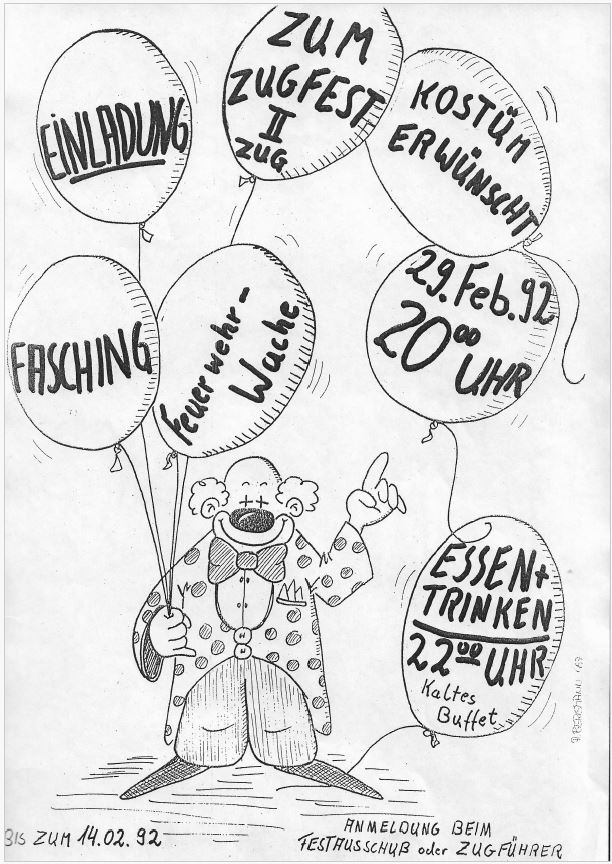 EINLADUNG
ZUM
ZUGFEST
II
ZUG
KOSTÜM
ERWÜNSCHT
FASCHING
Feuerwehr-
Wache
29. Feb. 92
20⁰⁰
UHR
ESSEN +
TRINKEN
22⁰⁰ UHR
Kaltes
Buffet
BIS ZUM 14.02.92
ANMELDUNG BEIM
FESTAUSSCHUß oder ZUGFÜHRER